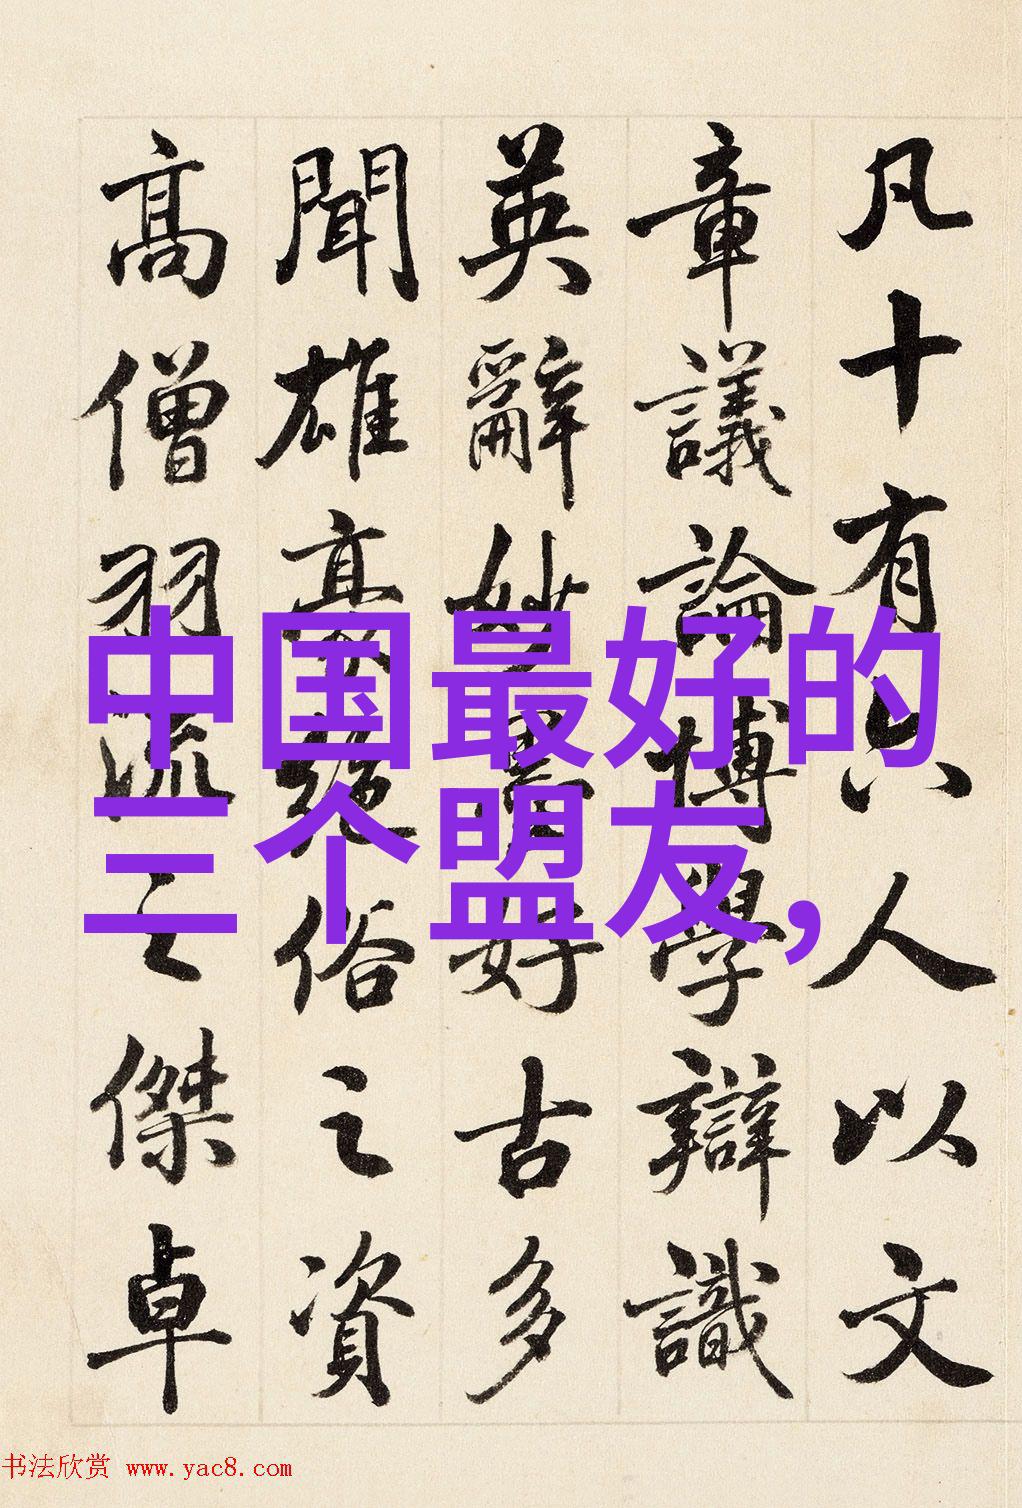 凡十有六人以文
章議論博學辯識
英辭妙墨好古多
聞雄豪絕俗之資
高僧羽流之傑卓
中国最好的
三个盟友,
书法欣赏 www.yac8.com